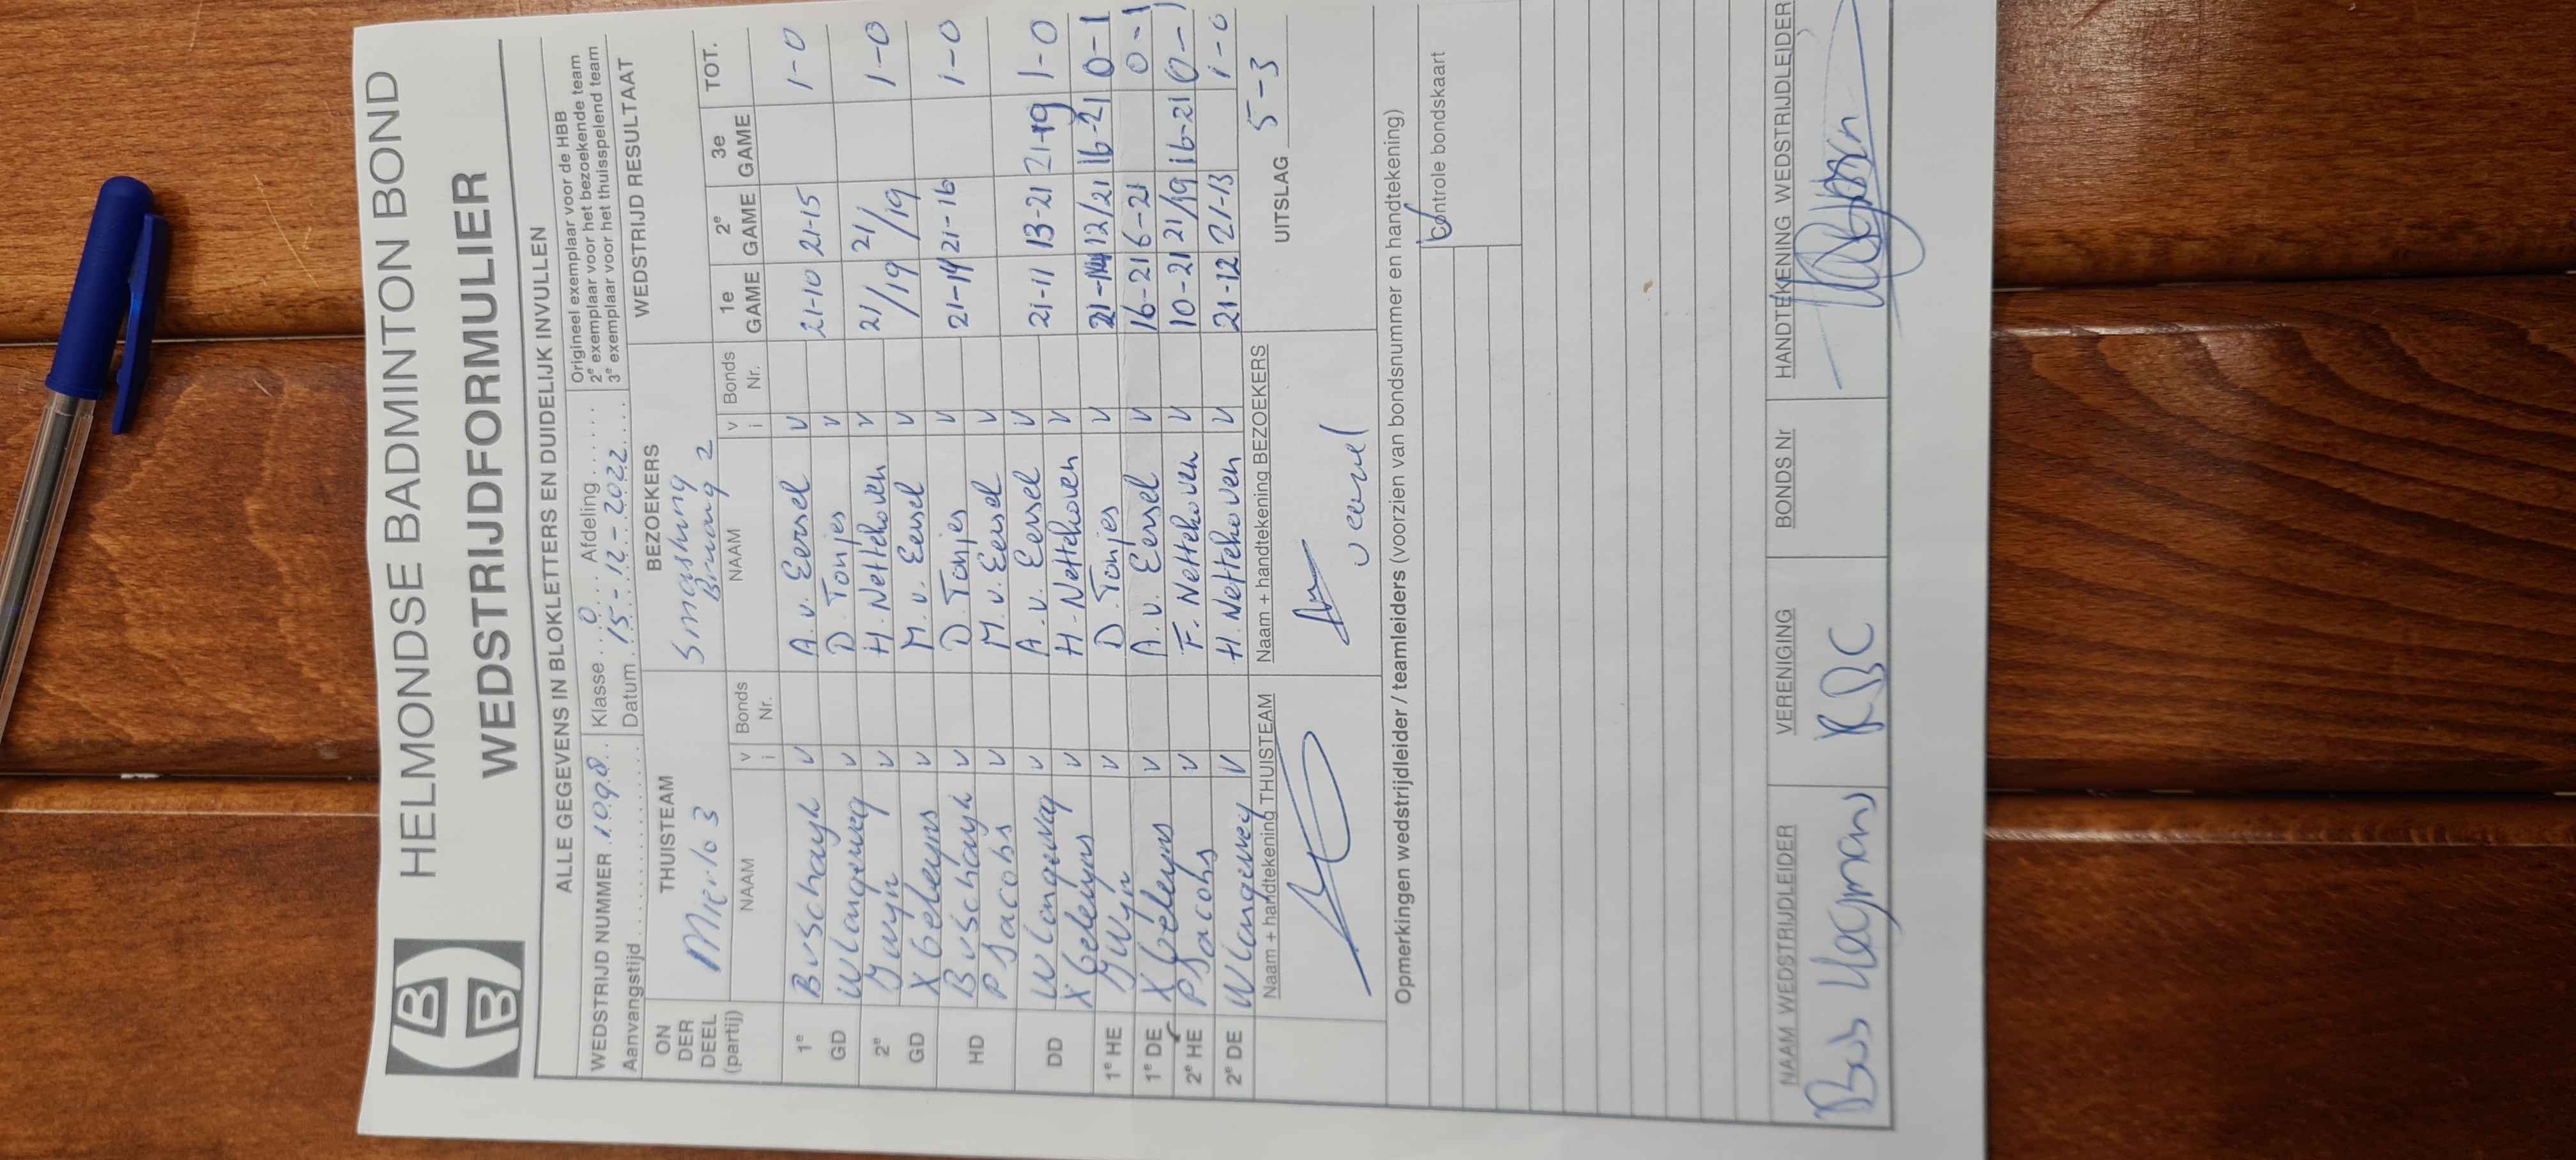 HELMONDSE BADMINTON BOND
WEDSTRIJDFORMULIER
ALLE GEGEVENS IN BLOKLETTERS EN DUIDELIJK INVULLEN
WEDSTRIJD NUMMER 1098 Klasse 0 Afdeling
Aanvangstijd Datum 15-12-2022
Origineel exemplaar voor de HBB
2e exemplaar voor het bezoekende team
3e exemplaar voor het thuisspelend team
ON DER DEEL (partij) THUISTEAM BEZOEKERS WEDSTRIJD RESULTAAT
Mierlo 3 Smashing 2
NAAM v i Bonds Nr. NAAM v i Bonds Nr. 1e GAME 2e GAME 3e GAME TOT.
1e GD B v Schayk v A. v. Eersel v 21-10 21-15 1-0
W Langeweg v D. Tonjes v
2e GD J Wijn v H. Nettehoven v 21/19 21/19 1-0
X Geleijns v M. v. Eersel v
HD B v Schayk v D. Tonjes v 21-14 21-16 1-0
P Jacobs v M. v. Eersel v
DD W Langeweg v A. v. Eersel v 21-11 13-21 21-19 1-0
X Geleijns v H. Nettehoven v
1e HE J Wijn v D. Tonjes v 21-14 12/21 16-21 0-1
1e DE X Geleijns v A. v. Eersel v 16-21 6-21 0-1
2e HE P Jacobs v F. Nettehoven v 10-21 21/19 16-21 0-1
2e DE W Langeweg v H. Nettehoven v 21-12 21-13 1-0
Naam + handtekening THUISTEAM Naam + handtekening BEZOEKERS UITSLAG 5-3
Opmerkingen wedstrijdleider / teamleiders (voorzien van bondsnummer en handtekening)
Controle bondskaart
NAAM WEDSTRIJDLEIDER VERENIGING BONDS Nr HANDTEKENING WEDSTRIJDLEIDER
Bas